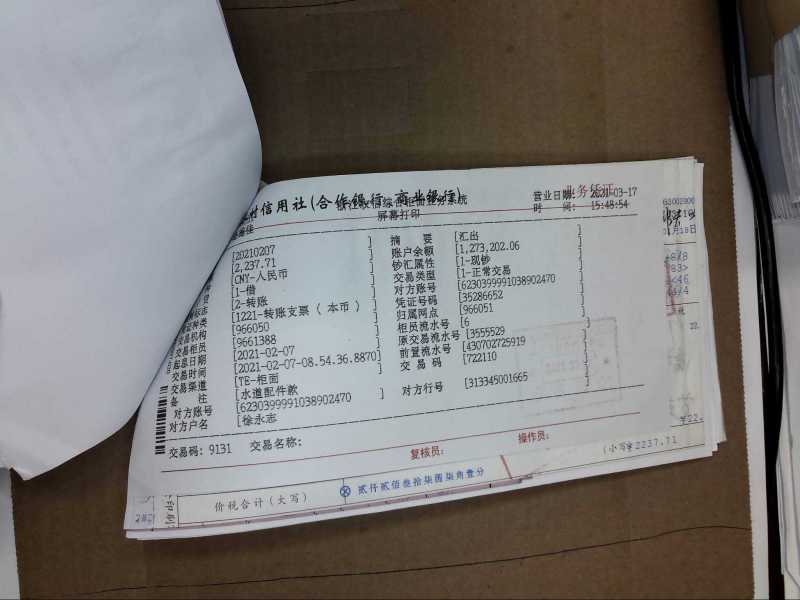 村信用社(合作银行 商业银行)
业务凭证
综合柜面业务系统
屏幕打印
营业日期: 2021-03-17
时 间: 15:48:54
[20210207 ] 摘 要 [汇出 ]
[2,237.71 ] 账户余额 [1,273,202.06 ]
[CNY-人民币 ] 钞汇属性 [1-现钞 ]
[1-借 ] 交易类型 [1-正常交易 ]
标志 [2-转账 ] 对方账号 [6230399991038902470 ]
种类 [1221-转账支票(本币) ] 凭证号码 [35286652 ]
交易机构 [966050 ] 归属网点 [966051 ]
交易柜员 [9661388 ] 柜员流水号 [6 ]
起息日期 [2021-02-07 ] 原交易流水号 [3555529 ]
交易时间 [2021-02-07-08.54.36.8870] 前置流水号 [430702725919 ]
交易渠道 [TE-柜面 ] 交 易 码 [722110 ]
备 注 [水道配件款 ]
对方账号 [6230399991038902470 ] 对方行号 [313345001665 ]
对方户名 [徐永志
交易码: 9131 交易名称:
复核员:
操作员:
价税合计(大写) ⊗ 贰仟贰佰叁拾柒圆柒角壹分
(小写)¥2237.71